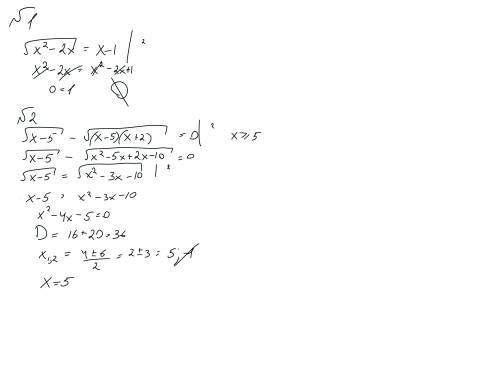 №1
√(x²-2x) = x-1 |²
x²-2x = x²-2x+1
0=1 ∅
№2
√(x-5) - √((x-5)(x+2)) = 0 |² x≥5
√(x-5) - √(x²-5x+2x-10) = 0
√(x-5) = √(x²-3x-10) |²
x-5 = x²-3x-10
x²-4x-5=0
D = 16+20=36
x₁,₂ = (4±6)/2 = 2±3 = 5; -1
x=5